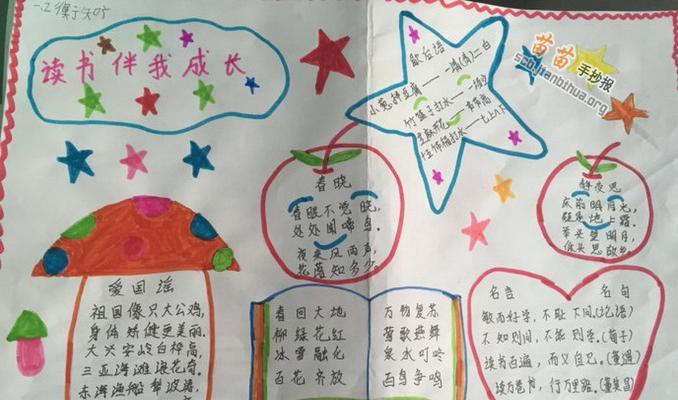 读书伴我成长
歇后语
小葱拌豆腐——一清(青)二白
竹篮子打水——一场空
十五个吊桶打水——七上八下
苗苗
手抄报
scb.jianbihua.org
春晓
春眠不觉晓,
处处闻啼鸟。
夜来风雨声,
花落知多少。
静夜思
床前明月光,
疑是地上霜。
举头望明月,
低头思故乡。
爱国谣
祖国像只大公鸡,
身体矫健更美丽.
大兴安岭白桦高,
三亚海滩浪花奇.
东海渔船犁波涛,
春回大地
柳绿花红
冰雪融化
百花齐放
万物复苏
莺歌燕舞
泉水叮咚
百鸟争鸣
名言 名句
敏而好学,不耻下问.(论语)
不知则问,不能则学.(荀子)
读书百遍,而义自见.(董遇)
读万卷书,行万里路.(董其昌)